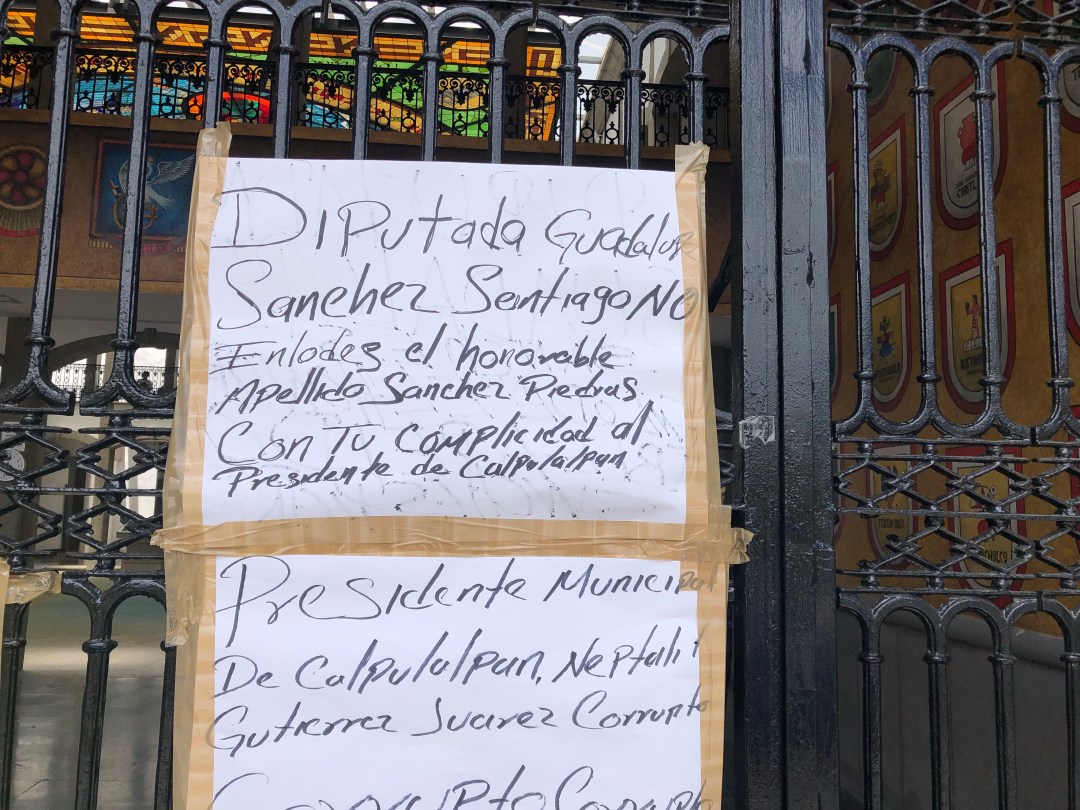 Diputada Guadalupe
Sanchez Santiago No
Enlodes el honorable
Apellido Sanchez Piedras
Con Tu Complicidad al
Presidente de Calpulalpan
Presidente Municipal
De Calpulalpan, Neptali
Gutierrez Juarez Corrupto
Corrupto Corrupto